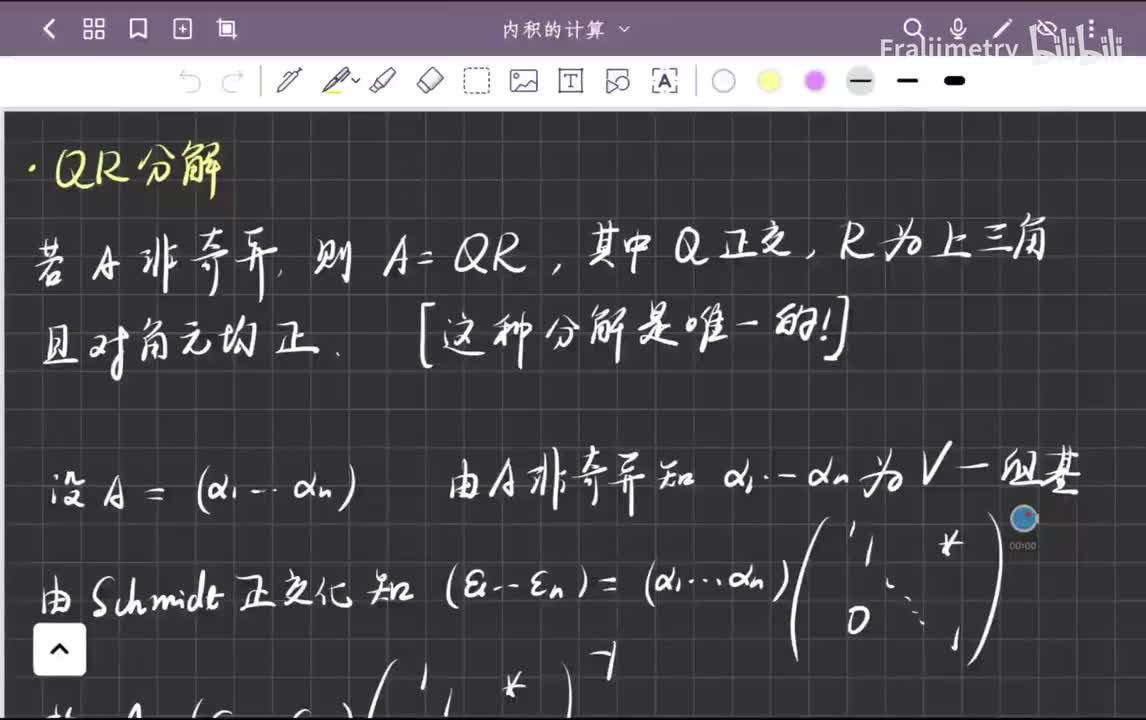 内积的计算
Fraliimetry bilibili
· QR分解
若 A 非奇异, 则 A = QR, 其中 Q 正交, R 为上三角
且对角元均正. [这种分解是唯一的!]
设 A = (α₁ ... αₙ) 由 A 非奇异知 α₁ ... αₙ 为 V 一组基
00:00
由 Schmidt 正交化知 (ε₁ ... εₙ) = (α₁ ... αₙ) ( 1 1 * 0 ⋱ 1 )
( 1 1 * )⁻¹